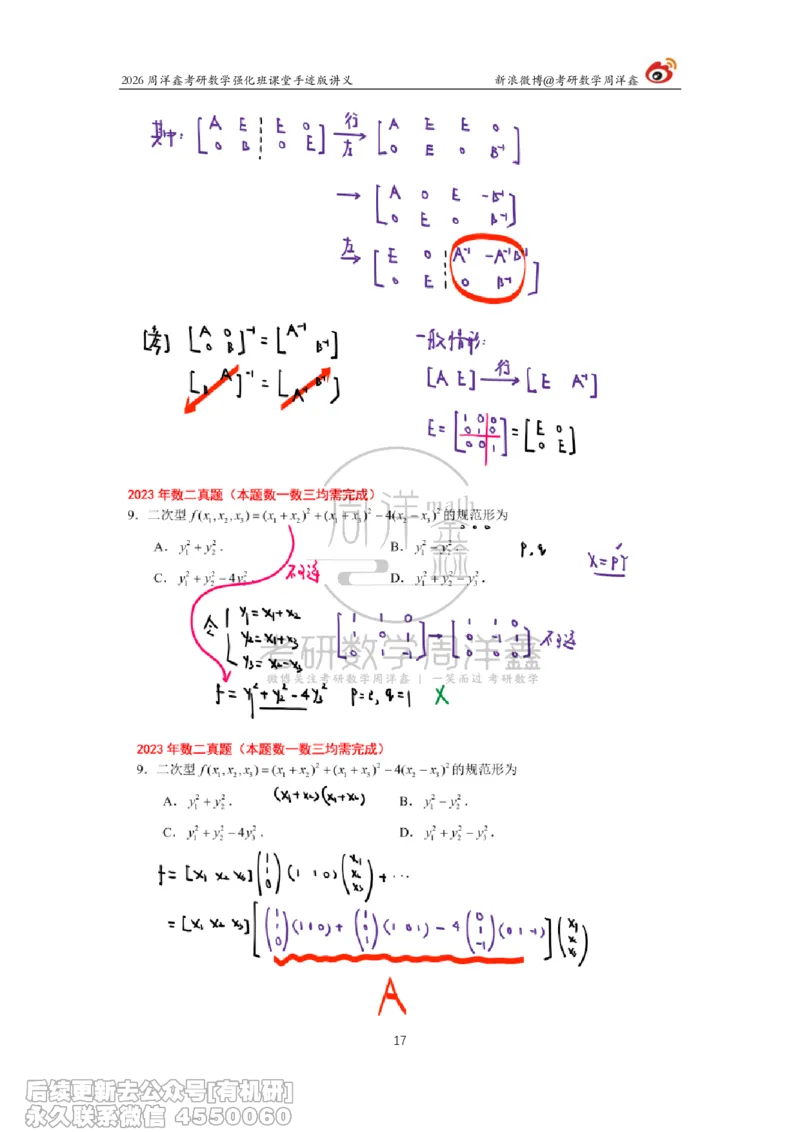 2026 周洋鑫考研数学强化班课堂手迹版讲义 新浪微博@考研数学周洋鑫
其中: [A E ┆ E 0; 0 B ┆ 0 E] 行→左 [A E E 0; 0 E 0 B⁻¹]
→ [A 0 E -B⁻¹; 0 E 0 B⁻¹]
左→ [E 0 ┆ A⁻¹ -A⁻¹B⁻¹; 0 E ┆ 0 B⁻¹]
[A 0; 0 B]⁻¹ = [A⁻¹; B⁻¹] 一般情形:
[A; B]⁻¹ = [B⁻¹; A⁻¹] [A E] 行→ [E A⁻¹]
E = [1 0 0; 0 1 0; 0 0 1] = [E 0; 0 E]
2023 年数二真题（本题数一数三均需完成）
9．二次型 f(x₁, x₂, x₃) = (x₁ + x₂)² + (x₁ + x₃)² − 4(x₂ − x₃)² 的规范形为
A．y₁² + y₂²． B．y₁² − y₂²． p, q x = PY
C．y₁² + y₂² − 4y₃²． 不可逆 D．y₁² + y₂² − y₃²．
令 { y₁ = x₁+x₂
y₂ = x₁+x₃ [1 1 0; 1 0 1; 0 1 -1] → [1 1 0; 0 -1 1; 0 0 0] 不可逆
y₃ = x₂-x₃
考研数学周洋鑫
微博关注考研数学周洋鑫 | 一笑而过 考研数学
f = y₁² + y₂² - 4y₃² p=2, q=1 X
2023 年数二真题（本题数一数三均需完成）
9．二次型 f(x₁, x₂, x₃) = (x₁ + x₂)² + (x₁ + x₃)² − 4(x₂ − x₃)² 的规范形为
A．y₁² + y₂²． (x₁+x₂)(x₁+x₂) B．y₁² − y₂²．
C．y₁² + y₂² − 4y₃²． D．y₁² + y₂² − y₃²．
f = [x₁ x₂ x₃] (1; 1; 0) (1 1 0) (x₁; x₂; x₃) + ⋯
= [x₁ x₂ x₃] [(1; 1; 0)(1 1 0) + (1; 0; 1)(1 0 1) - 4(0; 1; -1)(0 1 -1)] (x₁; x₂; x₃)
A
17
后续更新去公众号[有机研]
永久联系微信 4550060